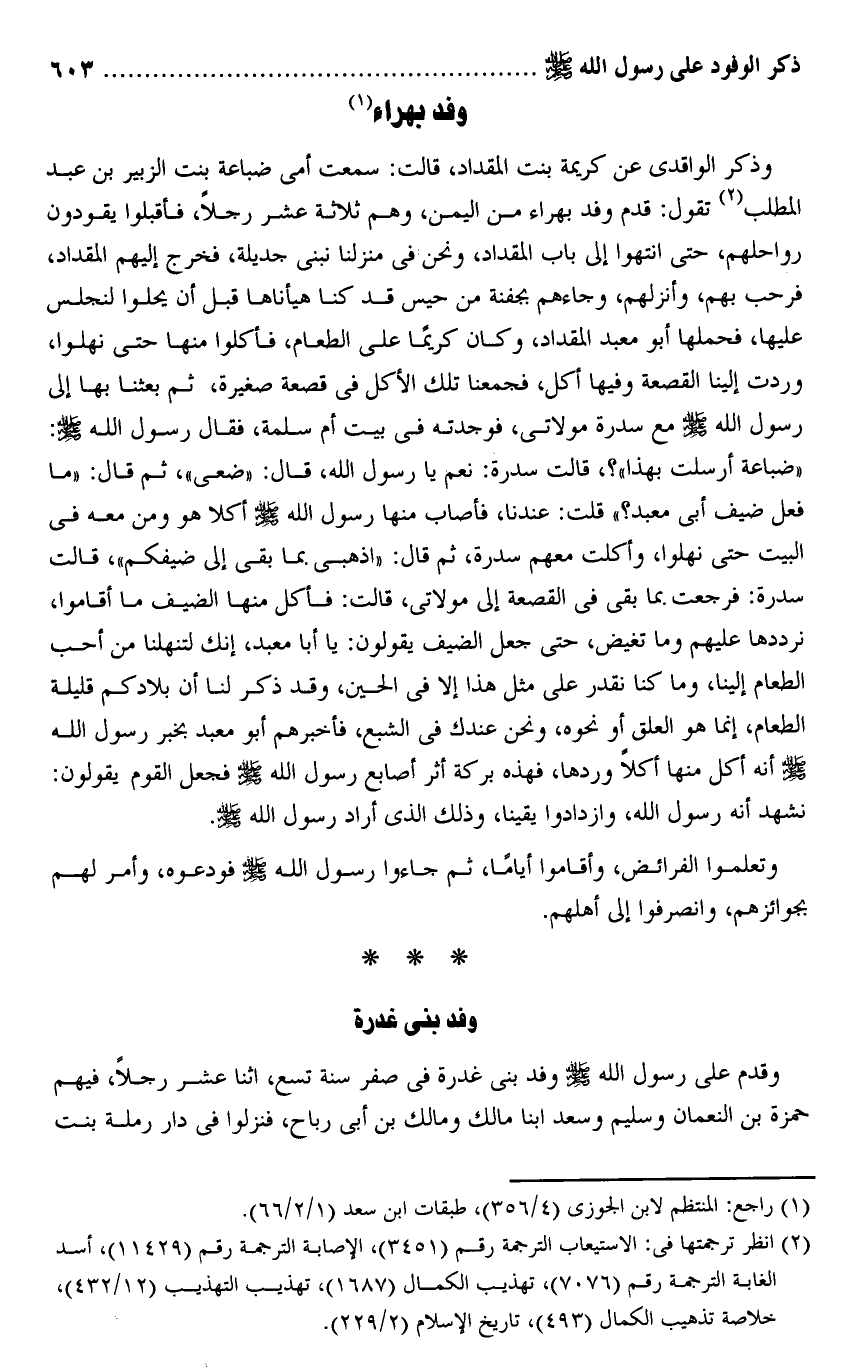 ذكر الوفود على رسول الله ﷺ ..................................................... ٦٠٣
وفد بهراء(١)
وذكر الواقدى عن كريمة بنت المقداد، قالت: سمعت أمى ضباعة بنت الزبير بن عبد
المطلب(٢) تقول: قدم وفد بهراء من اليمن، وهم ثلاثة عشر رجلاً، فأقبلوا يقودون
رواحلهم، حتى انتهوا إلى باب المقداد، ونحن فى منزلنا نبنى جديلة، فخرج إليهم المقداد،
فرحب بهم، وأنزلهم، وجاءهم بجفنة من حيس قد كنا هيأناها قبل أن يحلوا لنجلس
عليها، فحملها أبو معبد المقداد، وكان كريمًا على الطعام، فأكلوا منها حتى نهلوا،
وردت إلينا القصعة وفيها أكل، فجمعنا تلك الأكل فى قصعة صغيرة، ثم بعثنا بها إلى
رسول الله ﷺ مع سدرة مولاتى، فوجدته فى بيت أم سلمة، فقال رسول الله ﷺ:
«ضباعة أرسلت بهذا»؟، قالت سدرة: نعم يا رسول الله، قال: «ضعى»، ثم قال: «ما
فعل ضيف أبى معبد؟» قلت: عندنا، فأصاب منها رسول الله ﷺ أكلا هو ومن معه فى
البيت حتى نهلوا، وأكلت معهم سدرة، ثم قال: «اذهبى بما بقى إلى ضيفكم»، قالت
سدرة: فرجعت بما بقى فى القصعة إلى مولاتى، قالت: فأكل منها الضيف ما أقاموا،
نرددها عليهم وما تغيض، حتى جعل الضيف يقولون: يا أبا معبد، إنك لتنهلنا من أحب
الطعام إلينا، وما كنا نقدر على مثل هذا إلا فى الحين، وقد ذكر لنا أن بلادكم قليلة
الطعام، إنما هو العلق أو نحوه، ونحن عندك فى الشبع، فأخبرهم أبو معبد بخبر رسول الله
ﷺ أنه أكل منها أكلاً وردها، فهذه بركة أثر أصابع رسول الله ﷺ فجعل القوم يقولون:
نشهد أنه رسول الله، وازدادوا يقينا، وذلك الذى أراد رسول الله ﷺ.
وتعلموا الفرائض، وأقاموا أيامًا، ثم جاءوا رسول الله ﷺ فودعوه، وأمر لهم
بجوائزهم، وانصرفوا إلى أهلهم.
* * *
وفد بنى غدرة
وقدم على رسول الله ﷺ وفد بنى غدرة فى صفر سنة تسع، اثنا عشر رجلاً، فيهم
حمزة بن النعمان وسليم وسعد ابنا مالك ومالك بن أبى رباح، فنزلوا فى دار رملة بنت
(١) راجع: المنتظم لابن الجوزى (٣٥٦/٤)، طبقات ابن سعد (٦٦/٢/١).
(٢) انظر ترجمتها فى: الاستيعاب الترجمة رقم (٣٤٥١)، الإصابة الترجمة رقم (١١٤٢٩)، أسد
الغابة الترجمة رقم (٧٠٧٦)، تهذيب الكمال (١٦٨٧)، تهذيب التهذيب (٤٣٢/١٢)،
خلاصة تذهيب الكمال (٤٩٣)، تاريخ الإسلام (٢٢٩/٢).